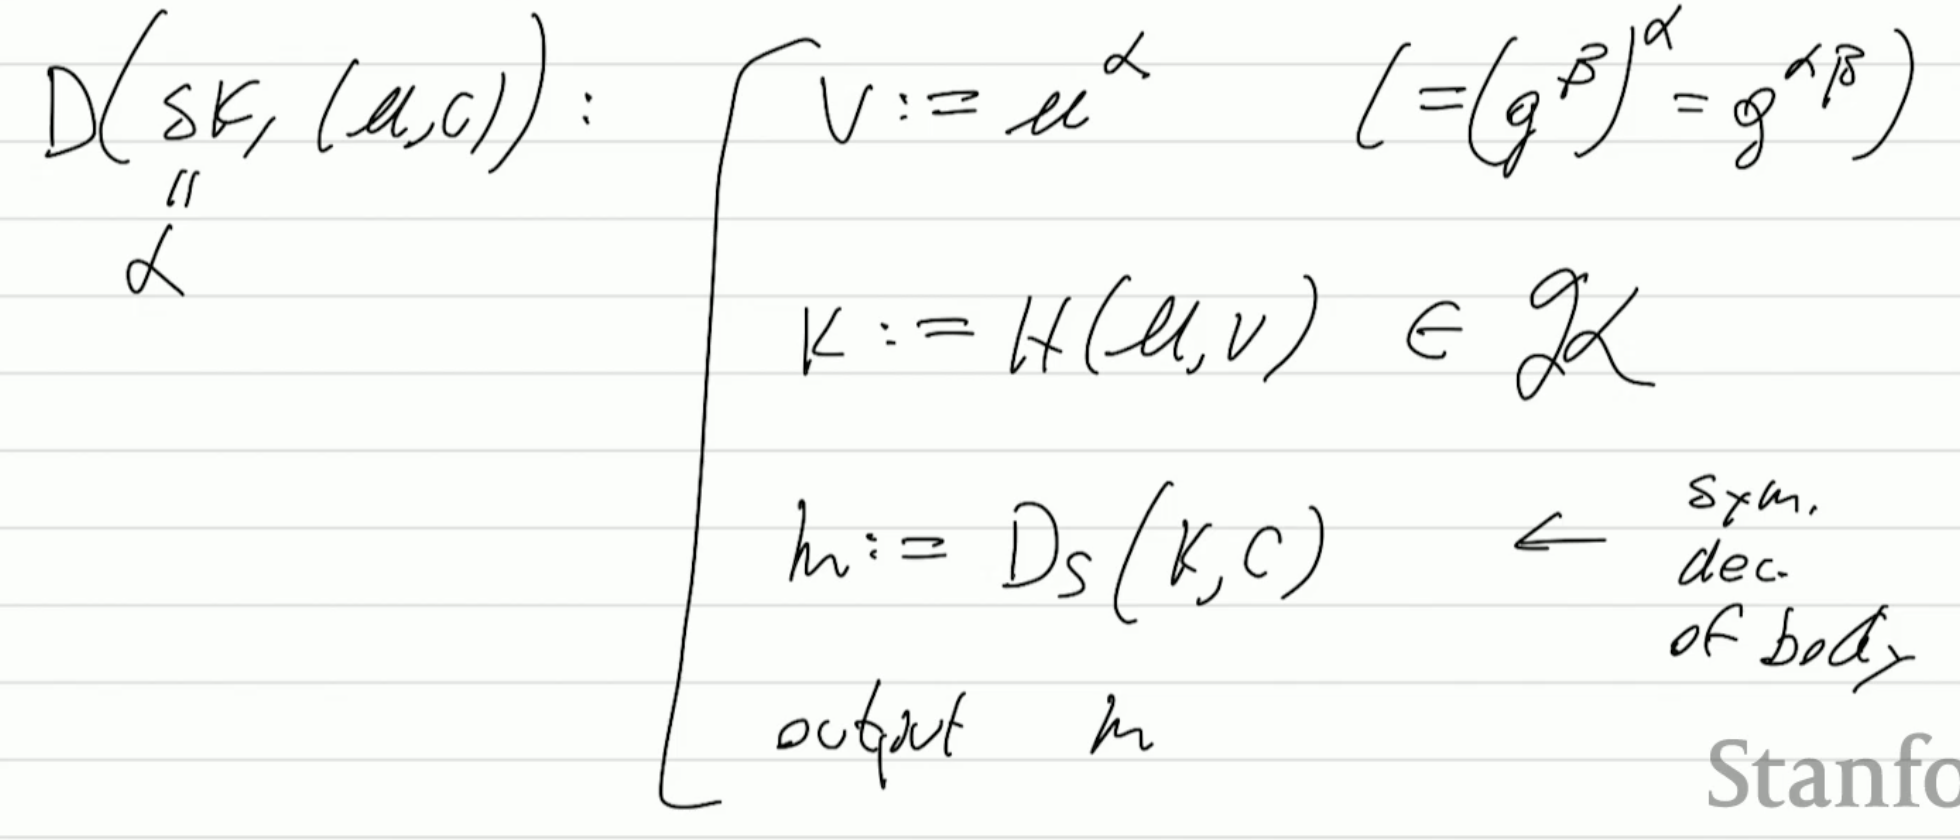 D(sk, (u,c)) : v := u^α (=(g^β)^α = g^{αβ})
"
α
k := H(u,v) ∈ 𝒦
m := D_s(k,c) ← sym. dec. of body
output m
Stanfo